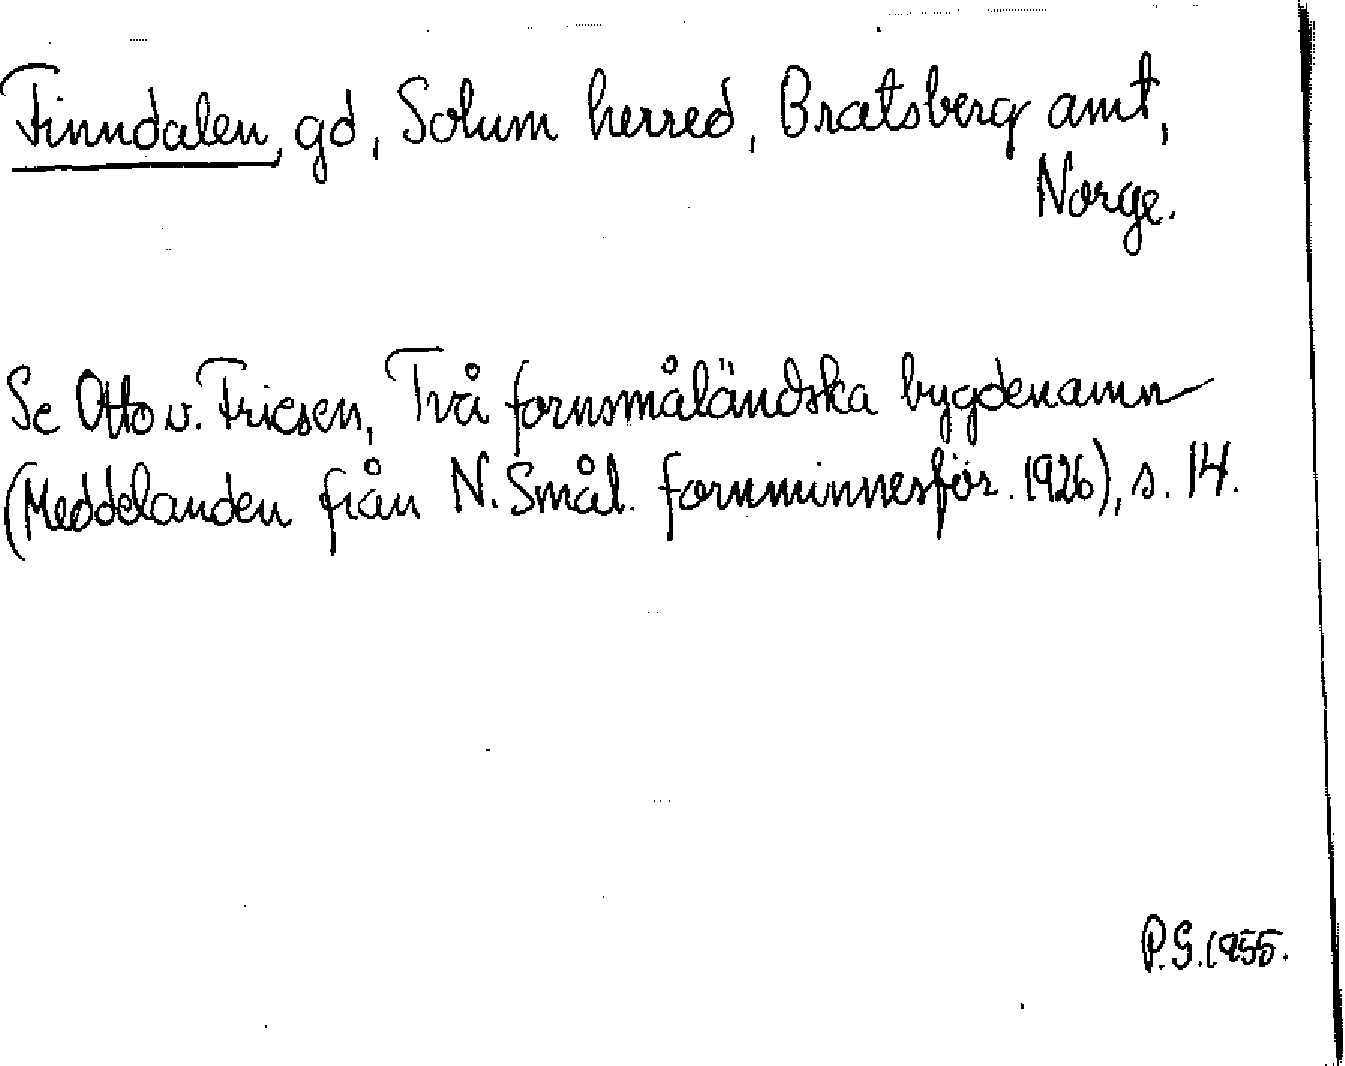 Finndalen, gd, Solum herred, Bratsberg amt,
Norge.
Se Otto v. Friesen, Två fornsmåländska bygdenamn
(Meddelanden från N. Smål. fornminnesför. 1926), s. 14.
P.G. 1955.